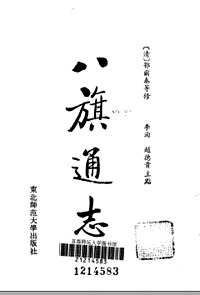 〔清〕鄂爾泰等修
李洵 趙德貴主點
八旗通志
東北師范大學出版社
21214583
1214583